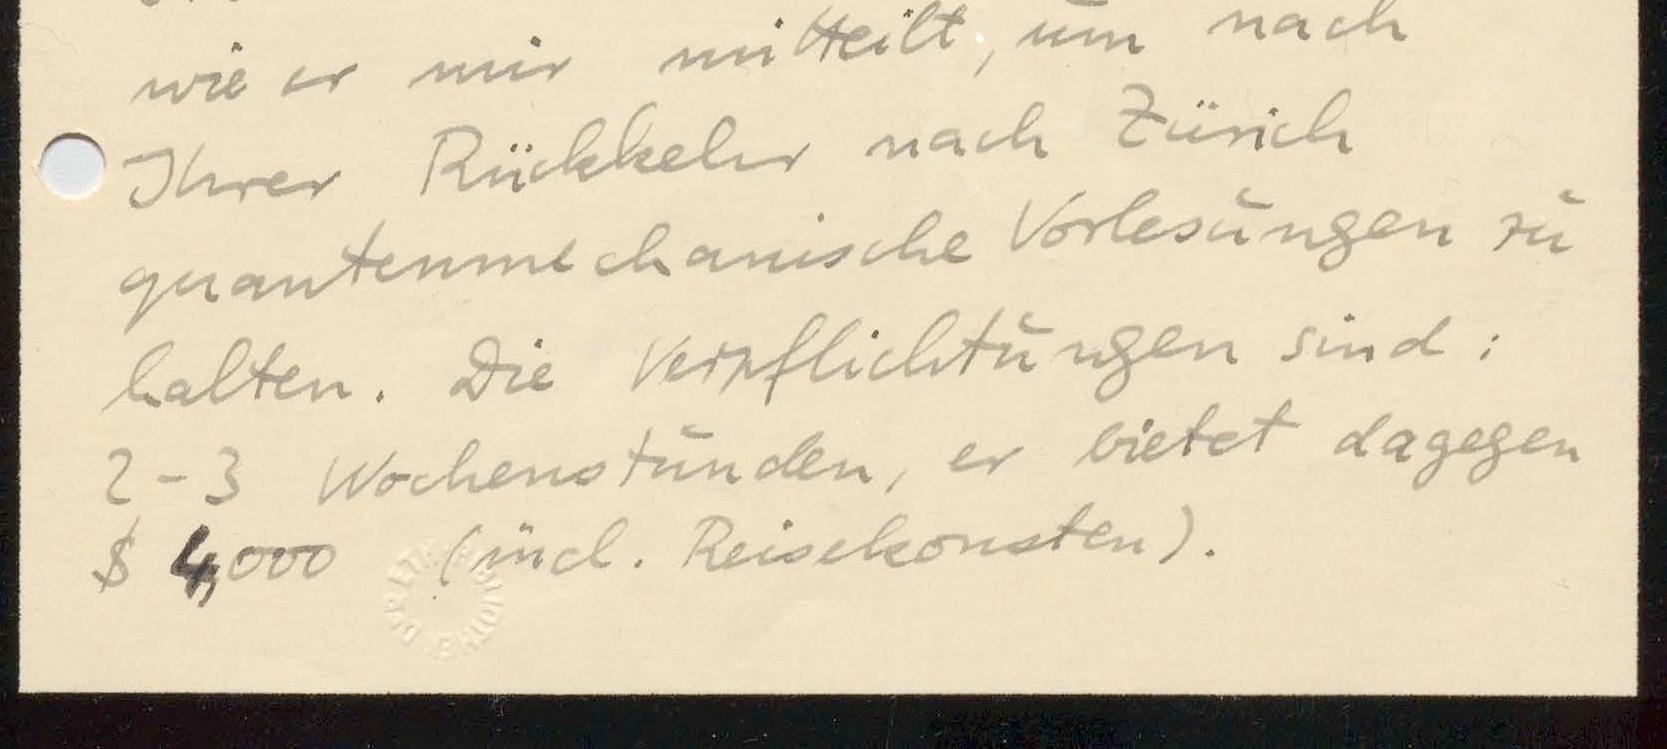 wie er mir mitteilt, um nach
Ihrer Rückkehr nach Zürich
quantenmechanische Vorlesungen zu
halten. Die Verpflichtungen sind:
2-3 Wochenstunden, er bietet dagegen
$ 4,000 (incl. Reisekonsten).